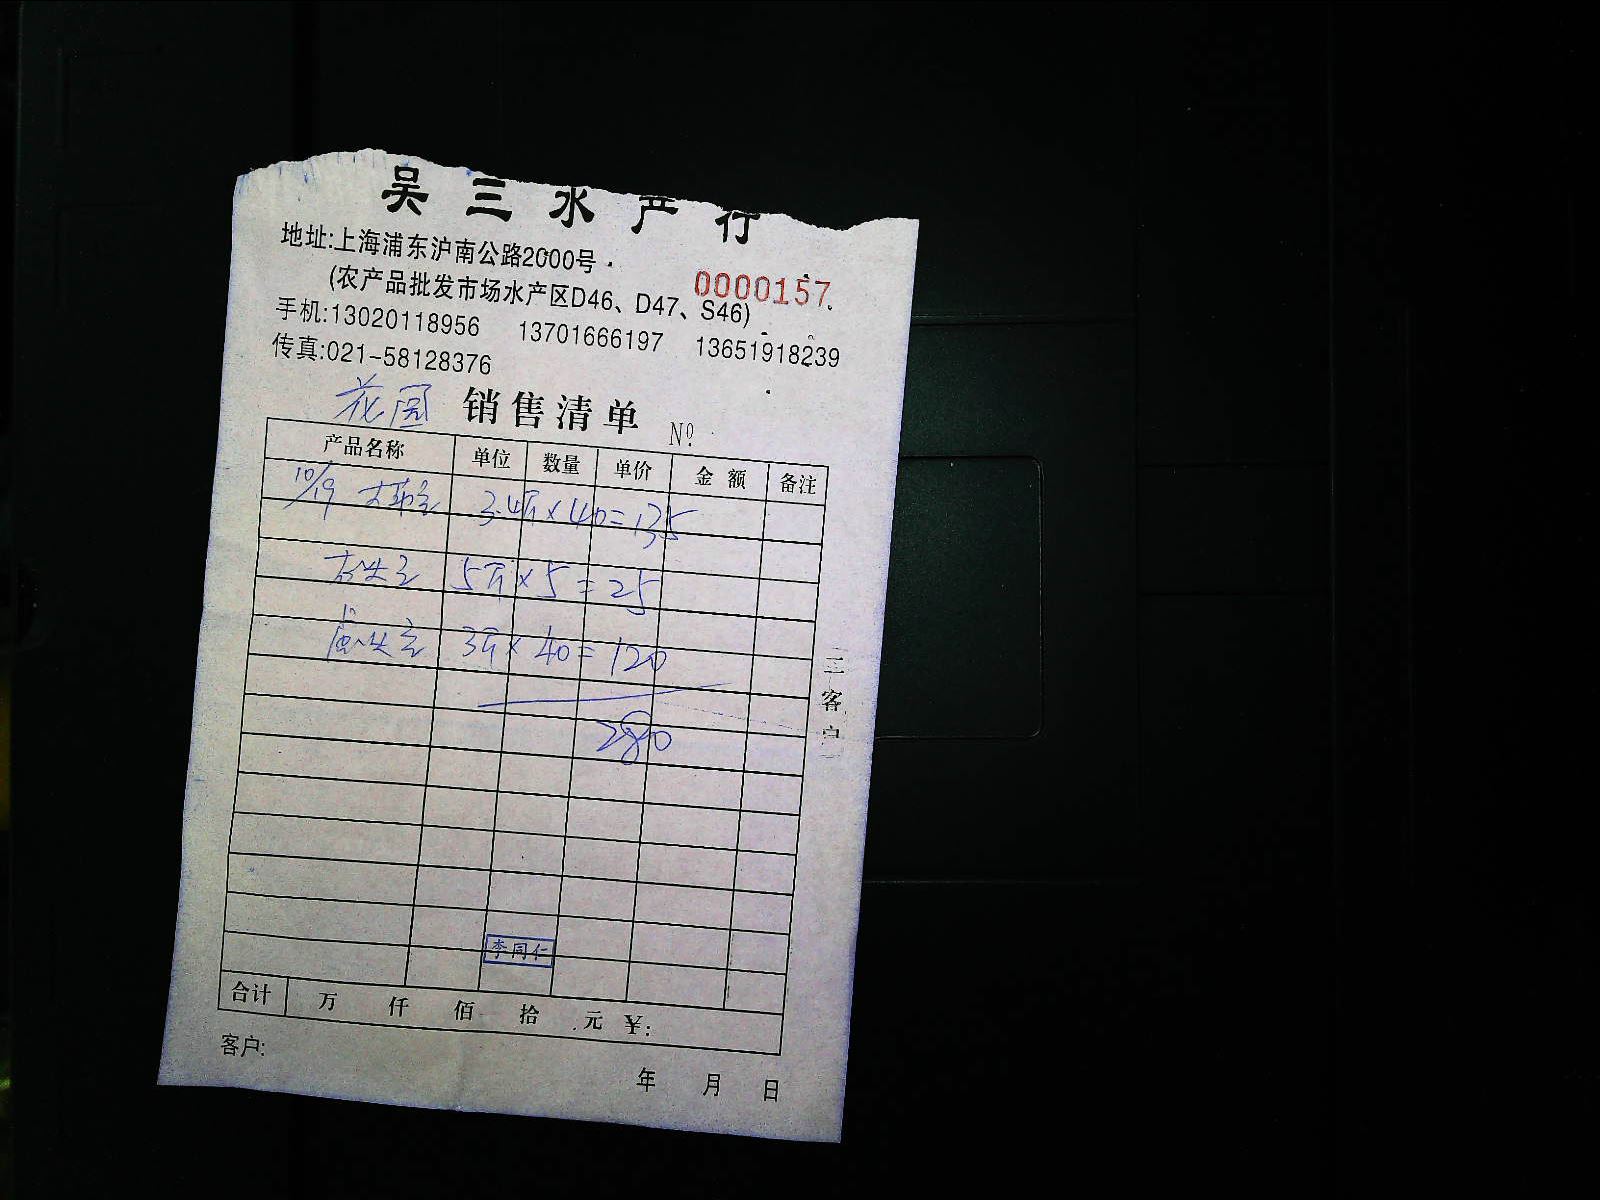 吴三水产行
地址:上海浦东沪南公路2000号
0000157
(农产品批发市场水产区D46、D47、S46)
手机:13020118956 13701666197 13651918239
传真:021-58128376
花园 销售清单 Nº
产品名称 单位 数量 单价 金额 备注
10/19 3.4斤×40=135
5斤×5=25
3斤×40=120
280
二客户
李同仁
合计 万 仟 佰 拾 元 ¥:
客户:
年 月 日